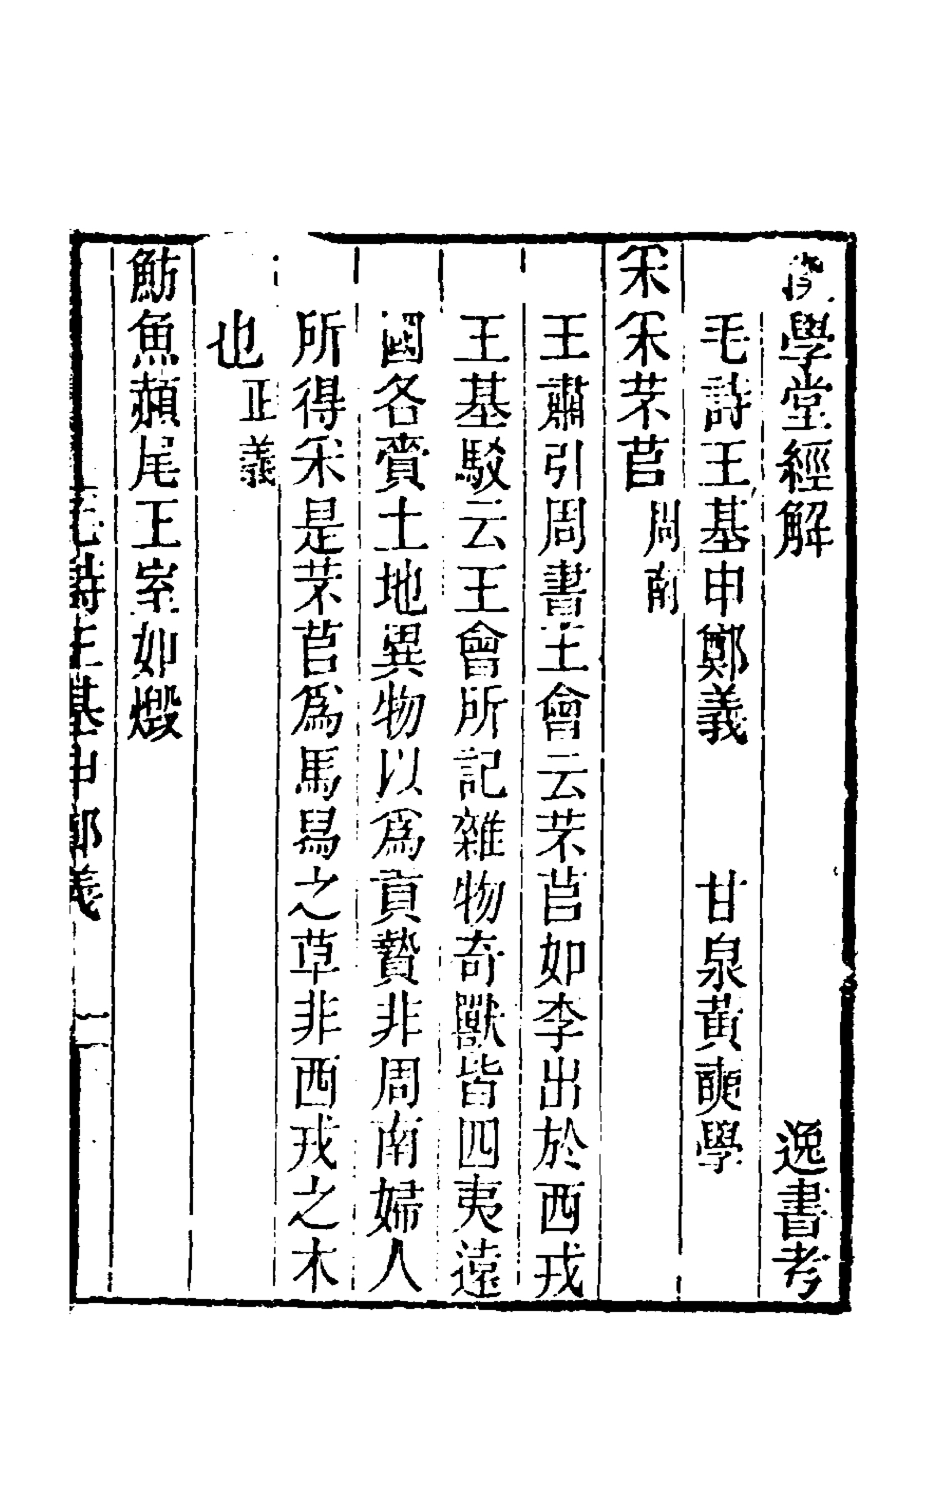 漢學堂經解 逸書考
毛詩王基申鄭義 甘泉黃奭學
采采芣苢周南
王肅引周書王會云芣苢如李出於西戎
王基駁云王會所記雜物奇獸皆四夷遠
國各賫土地異物以爲貢贄非周南婦人
所得采是芣苢爲馬舄之草非西戎之木
也正義
魴魚赬尾王室如燬
毛詩王基申鄭義 一